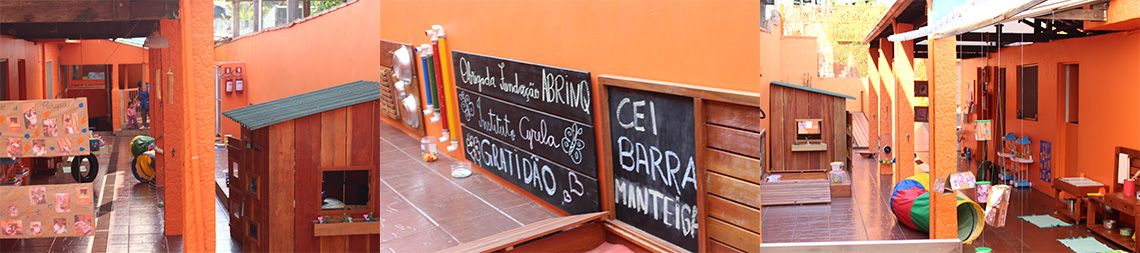 Obrigada Fundação ABRINQ
Instituto Cyrela
GRATIDÃO
CEI
BARRA
MANTEIGA